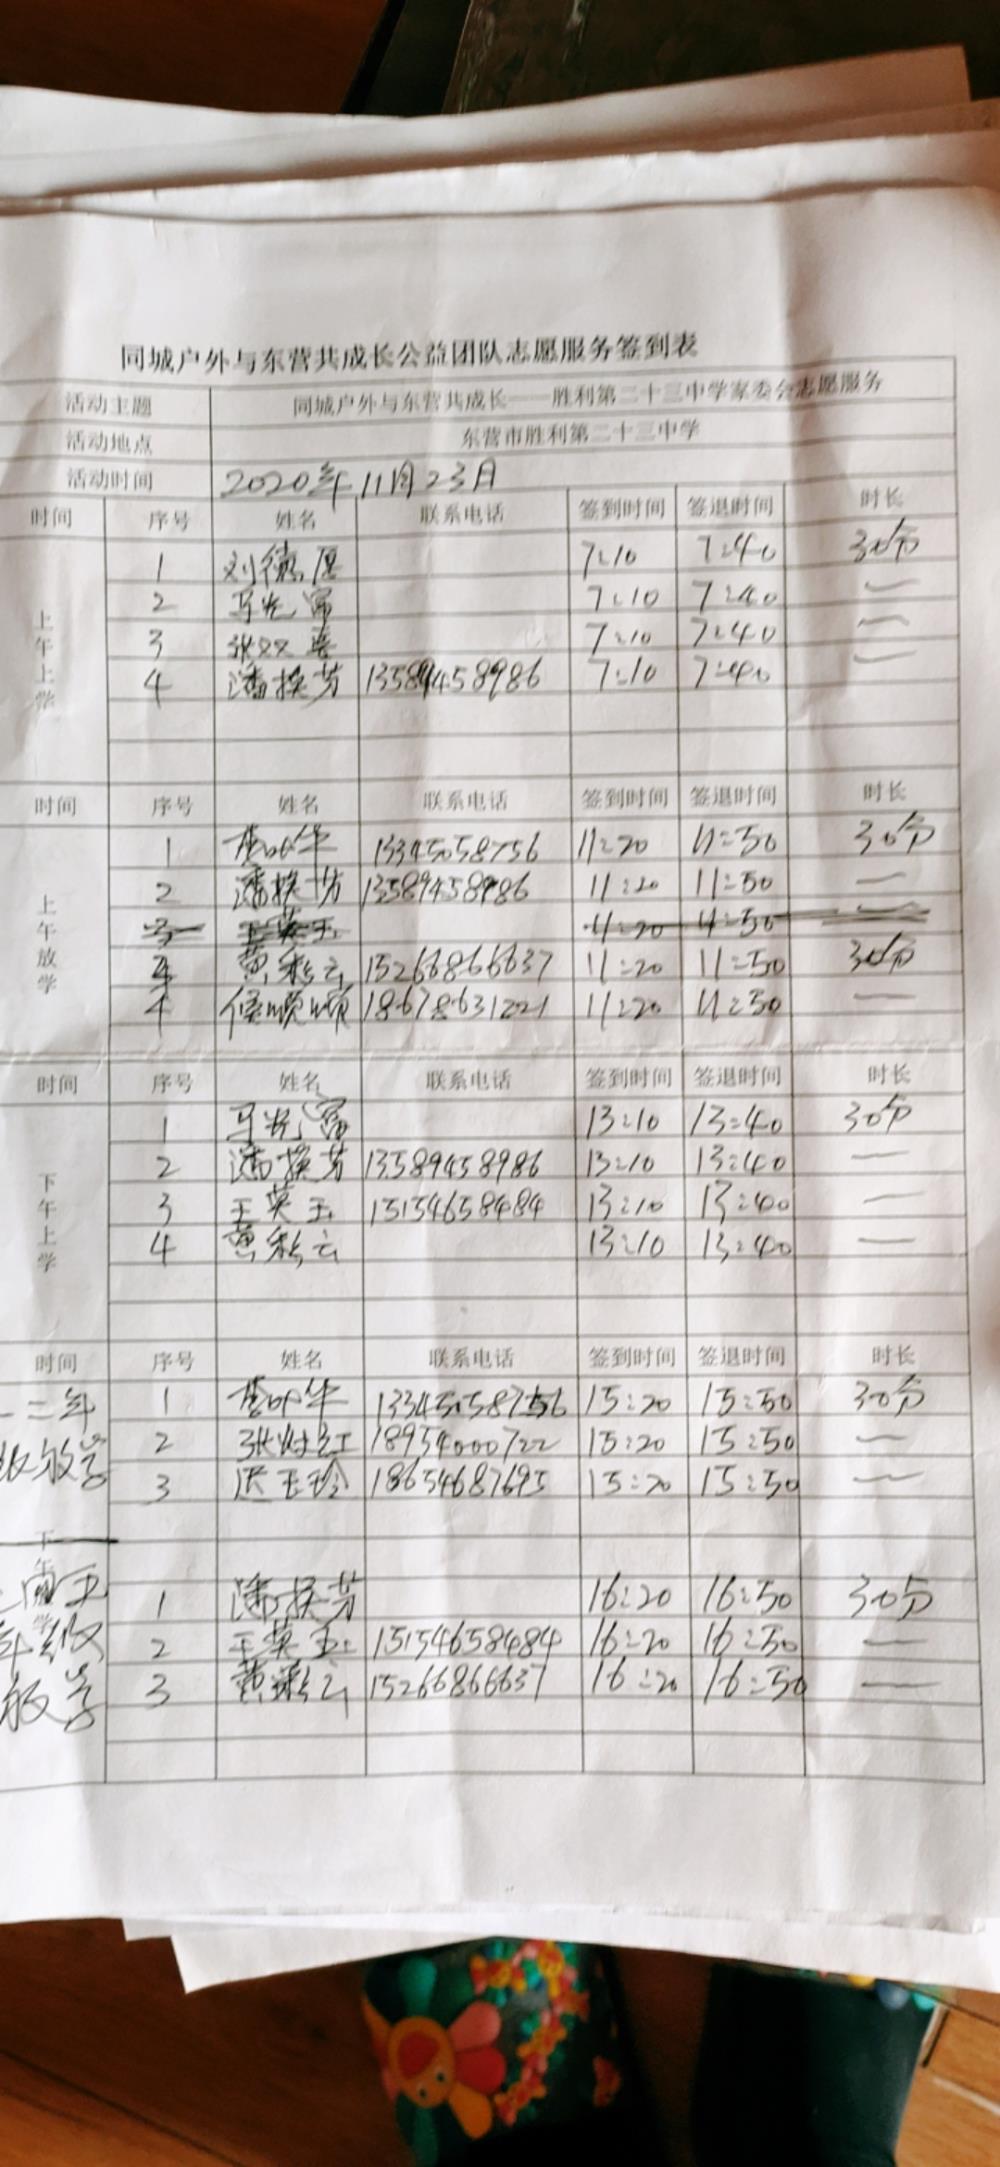 同城户外与东营共成长公益团队志愿服务签到表
活动主题 同城户外与东营共成长——胜利第二十三中学家委会志愿服务
活动地点 东营市胜利第二十三中学
活动时间 2020年11月23日
时间 序号 姓名 联系电话 签到时间 签退时间 时长
上午上学
1 刘德厚 7:10 7:40 30分
2 马光富 7:10 7:40 —
3 张双喜 7:10 7:40 —
4 潘换芳 13589458986 7:10 7:40 —
时间 序号 姓名 联系电话 签到时间 签退时间 时长
上午放学
1 13345058756 11:20 11:50 30分
2 潘换芳 13589458986 11:20 11:50 —
3 王英玉 11:20 11:50 —
3 黄彩云 15266866637 11:20 11:50 30分
4 侯顺顺 18678631221 11:20 11:50 —
时间 序号 姓名 联系电话 签到时间 签退时间 时长
下午上学
1 马光富 13:10 13:40 30分
2 潘换芳 13589458986 13:10 13:40 —
3 王英玉 15154658484 13:10 13:40 —
4 黄彩云 13:10 13:40 —
时间 序号 姓名 联系电话 签到时间 签退时间 时长
一二年
级放学
1 13345058756 15:20 15:50 30分
2 18954000722 15:20 15:50 —
3 玉珍 18654687695 15:20 15:50 —
下午 学
年级
放学
1 潘换芳 16:20 16:50 30分
2 王英玉 15154658484 16:20 16:50 —
3 黄彩云 15266866637 16:20 16:50 —